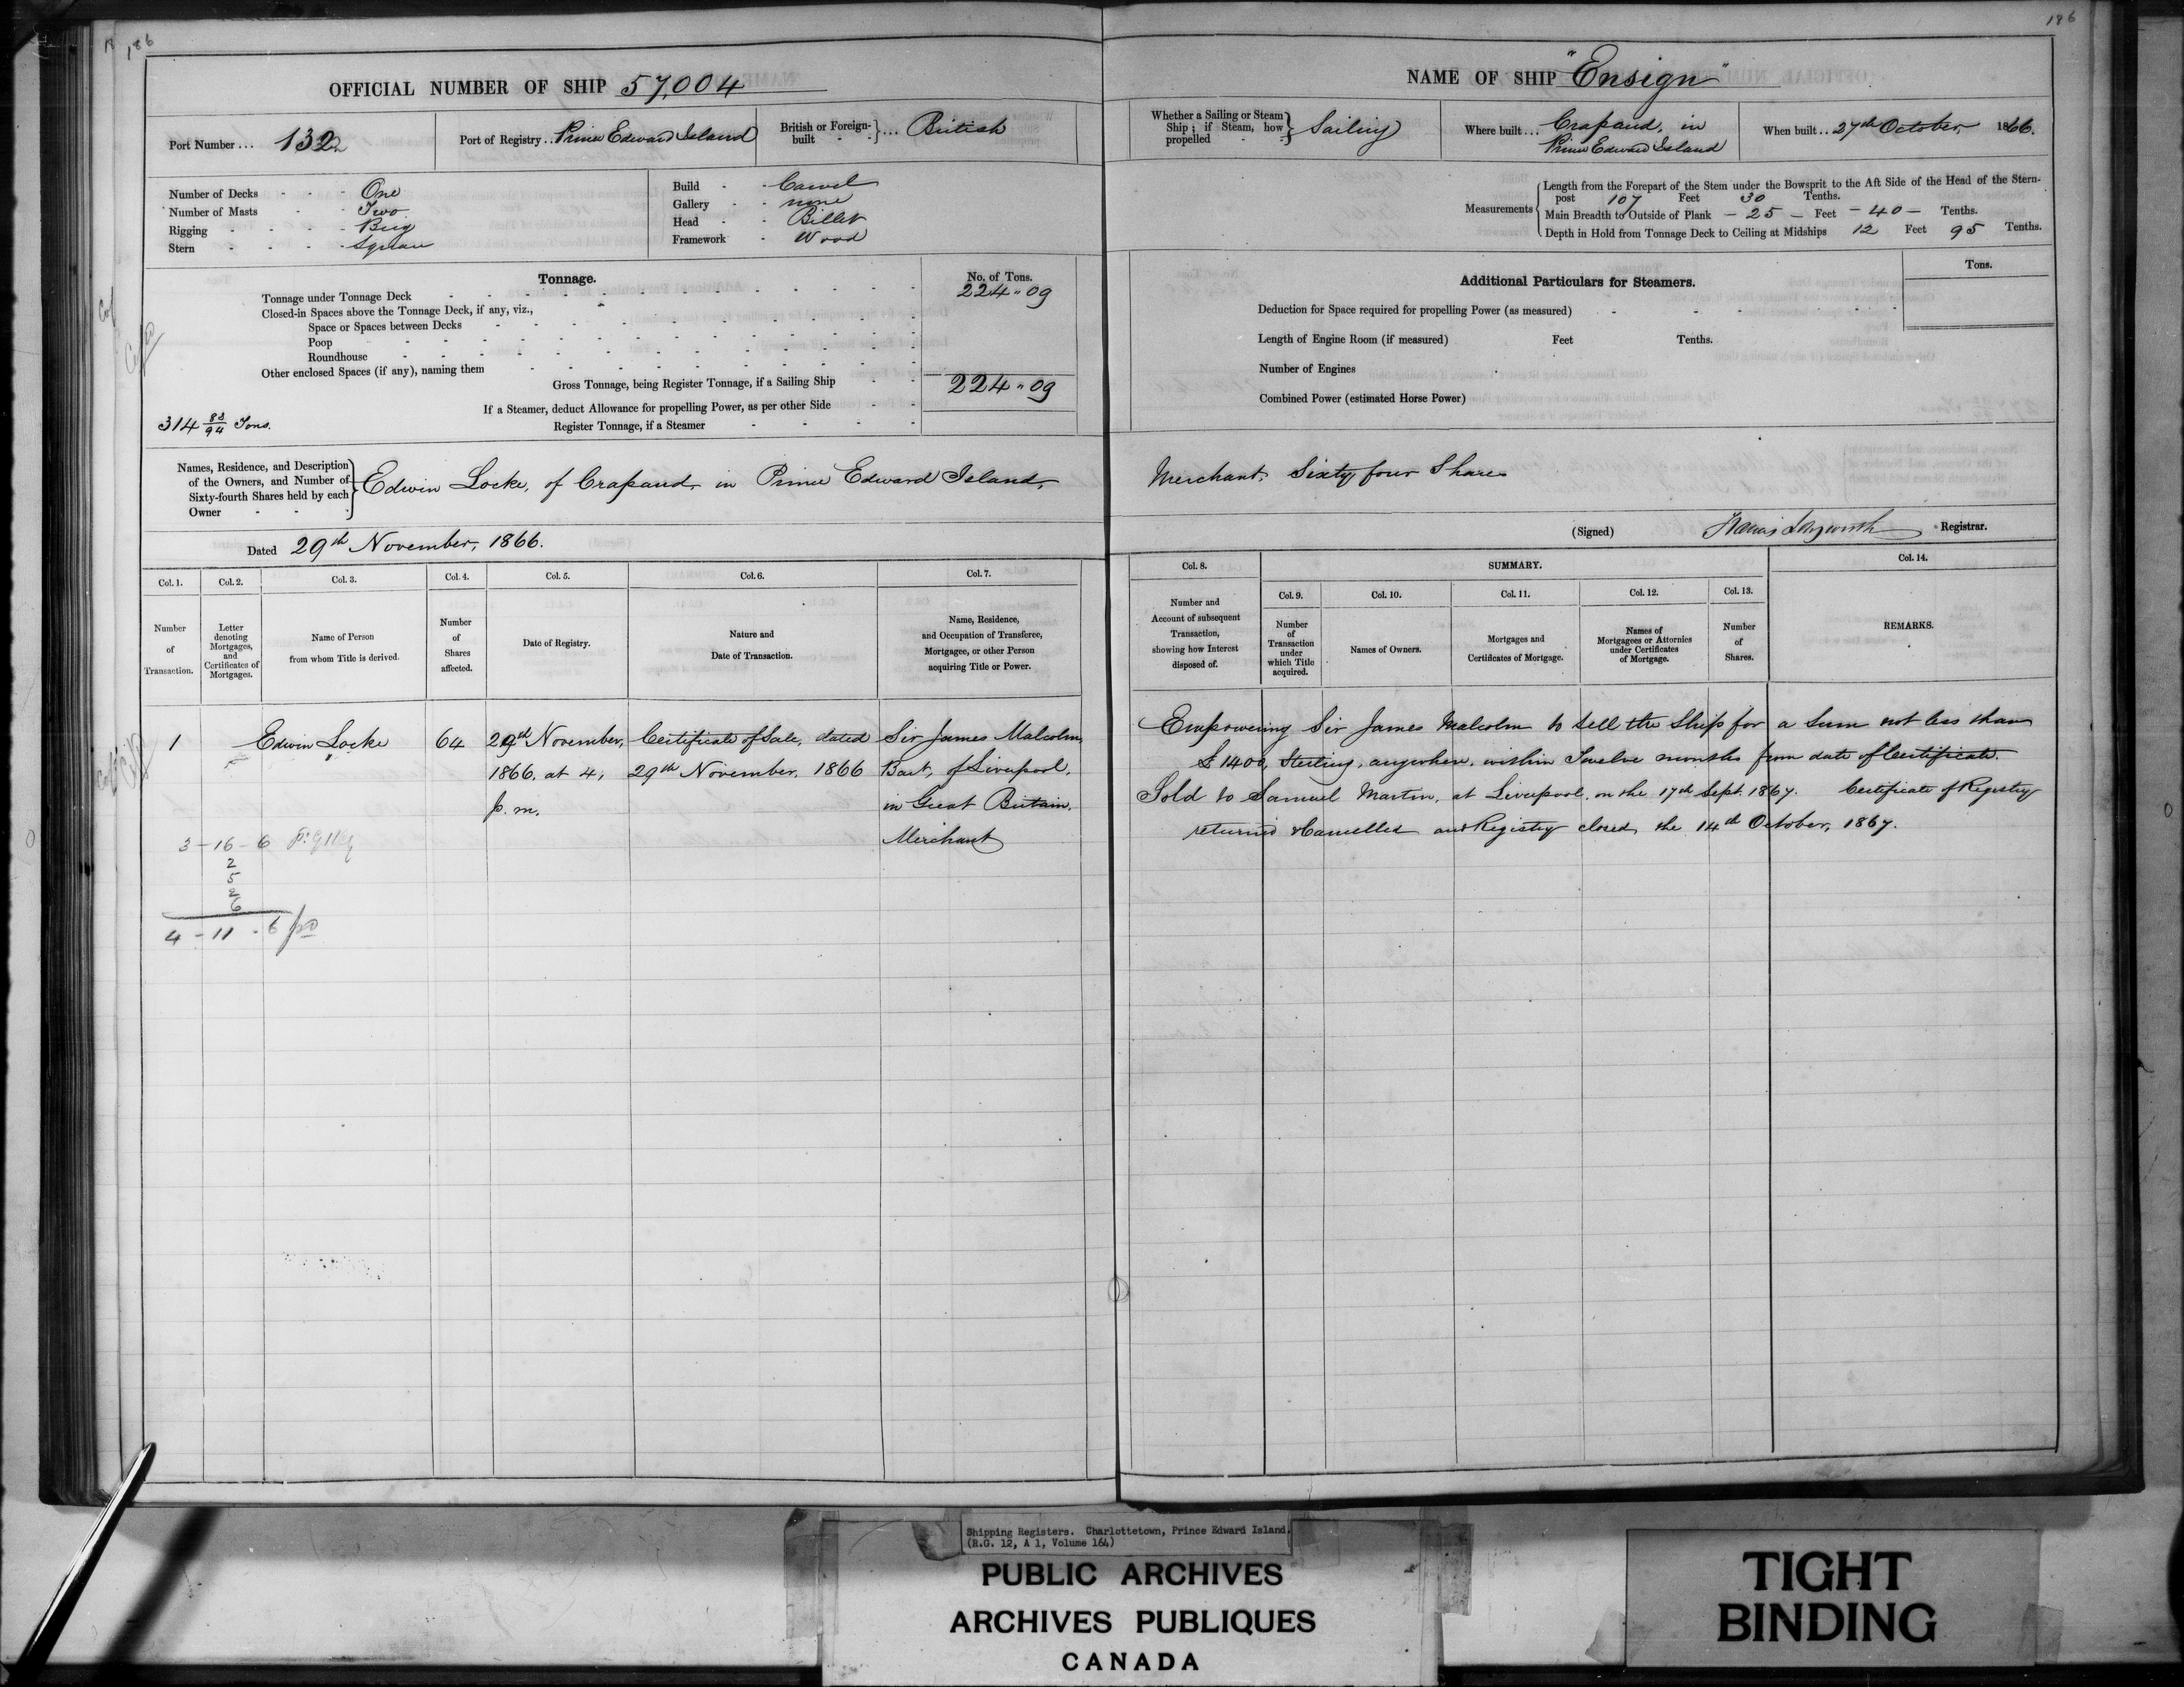 186
186
OFFICIAL NUMBER OF SHIP 57,004
NAME OF SHIP "Ensign"
Port Number ... 132
Port of Registry .. Prince Edward Island
British or Foreign-built - - } ... British
Whether a Sailing or Steam Ship; if Steam, how propelled - - } Sailing
Where built ... Crapaud, in
Prince Edward Island
When built .. 27th October 1866.
Number of Decks - - - One
Number of Masts - - - Two
Rigging - - - - Brig
Stern - - - - Square
Build - - Carvel
Gallery - - none
Head - - Billet
Framework - Wood
Measurements
Length from the Forepart of the Stem under the Bowsprit to the Aft Side of the Head of the Stern-
post 107 Feet 30 Tenths.
Main Breadth to Outside of Plank - 25 - Feet - 40 - Tenths.
Depth in Hold from Tonnage Deck to Ceiling at Midships 12 Feet 95 Tenths.
Tonnage.
No. of Tons.
Tonnage under Tonnage Deck 224 " 09
Closed-in Spaces above the Tonnage Deck, if any, viz.,
Space or Spaces between Decks
Poop
Roundhouse
Other enclosed Spaces (if any), naming them
Gross Tonnage, being Register Tonnage, if a Sailing Ship 224 " 09
If a Steamer, deduct Allowance for propelling Power, as per other Side
314 88/94 Tons.
Register Tonnage, if a Steamer
Additional Particulars for Steamers.
Tons.
Deduction for Space required for propelling Power (as measured)
Length of Engine Room (if measured) Feet Tenths.
Number of Engines
Combined Power (estimated Horse Power)
Names, Residence, and Description
of the Owners, and Number of
Sixty-fourth Shares held by each
Owner - - -
Edwin Locke, of Crapaud, in Prince Edward Island,
Merchant, Sixty four Shares
Dated 29th November, 1866.
(Signed) Registrar.
Col. 1. Col. 2. Col. 3. Col. 4. Col. 5. Col. 6. Col. 7.
Number of Transaction.
Letter denoting Mortgages, and Certificates of Mortgages.
Name of Person from whom Title is derived.
Number of Shares affected.
Date of Registry.
Nature and Date of Transaction.
Name, Residence, and Occupation of Transferee, Mortgagee, or other Person acquiring Title or Power.
Col. 8. SUMMARY. Col. 14.
Col. 9. Col. 10. Col. 11. Col. 12. Col. 13.
Number and Account of subsequent Transaction, showing how Interest disposed of.
Number of Transaction under which Title acquired.
Names of Owners.
Mortgages and Certificates of Mortgage.
Names of Mortgagees or Attornies under Certificates of Mortgage.
Number of Shares.
REMARKS.
1 Edwin Locke 64 29th November, Certificate of Sale, dated Sir James Malcolm,
1866. at 4, 29th November, 1866 Bart, of Liverpool,
p.m. in Great Britain,
Merchant
Empowering Sir James Malcolm to sell the Ship for a sum not less than
£1400, Sterling, anywhere, within Twelve months from date of Certificate.
Sold to Samuel Martin, at Liverpool, on the 17th Sept. 1867. Certificate of Registry
returned & Cancelled and Registry closed, the 14th October, 1867.
3 - 16 - 6
2
5
2
6
4 - 11 - 6
Shipping Registers. Charlottetown, Prince Edward Island.
(R.G. 12, A 1, Volume 164)
PUBLIC ARCHIVES
ARCHIVES PUBLIQUES
CANADA
TIGHT
BINDING